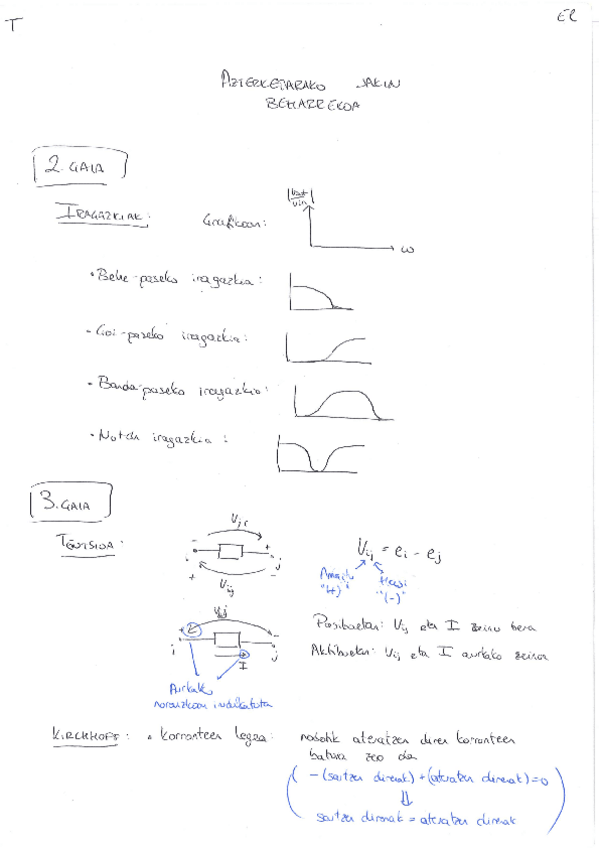 T
EZ
AZTERKETARAKO JAKIN
BEHARREKOA
2. GAIA
IRAGAZKIAK:
Grafikoan:
|Vout/Vin|
ω
• Behe-paseko iragazkia:
• Goi-paseko iragazkia:
• Banda-paseko iragazkia:
• Notch iragazkia:
3. GAIA
TENTSIOA:
Vji
- +
i j
+ -
Vij
Vij = ei - ej
Amaitu "(+)"
Hasi "(-)"
Vij
i j
I
Pasiboetan: Vij eta I zeinu bera
Aktiboetan: Vij eta I aurkako zeinua
Aurkako
noranzkoan indikatuta
KIRCHHOFF: • Korronteen legea: nodotik ateratzen diren korronteen
batura zero da
-(sartzen direnak) + (ateratzen direnak) = 0
⇓
sartzen direnak = ateratzen direnak